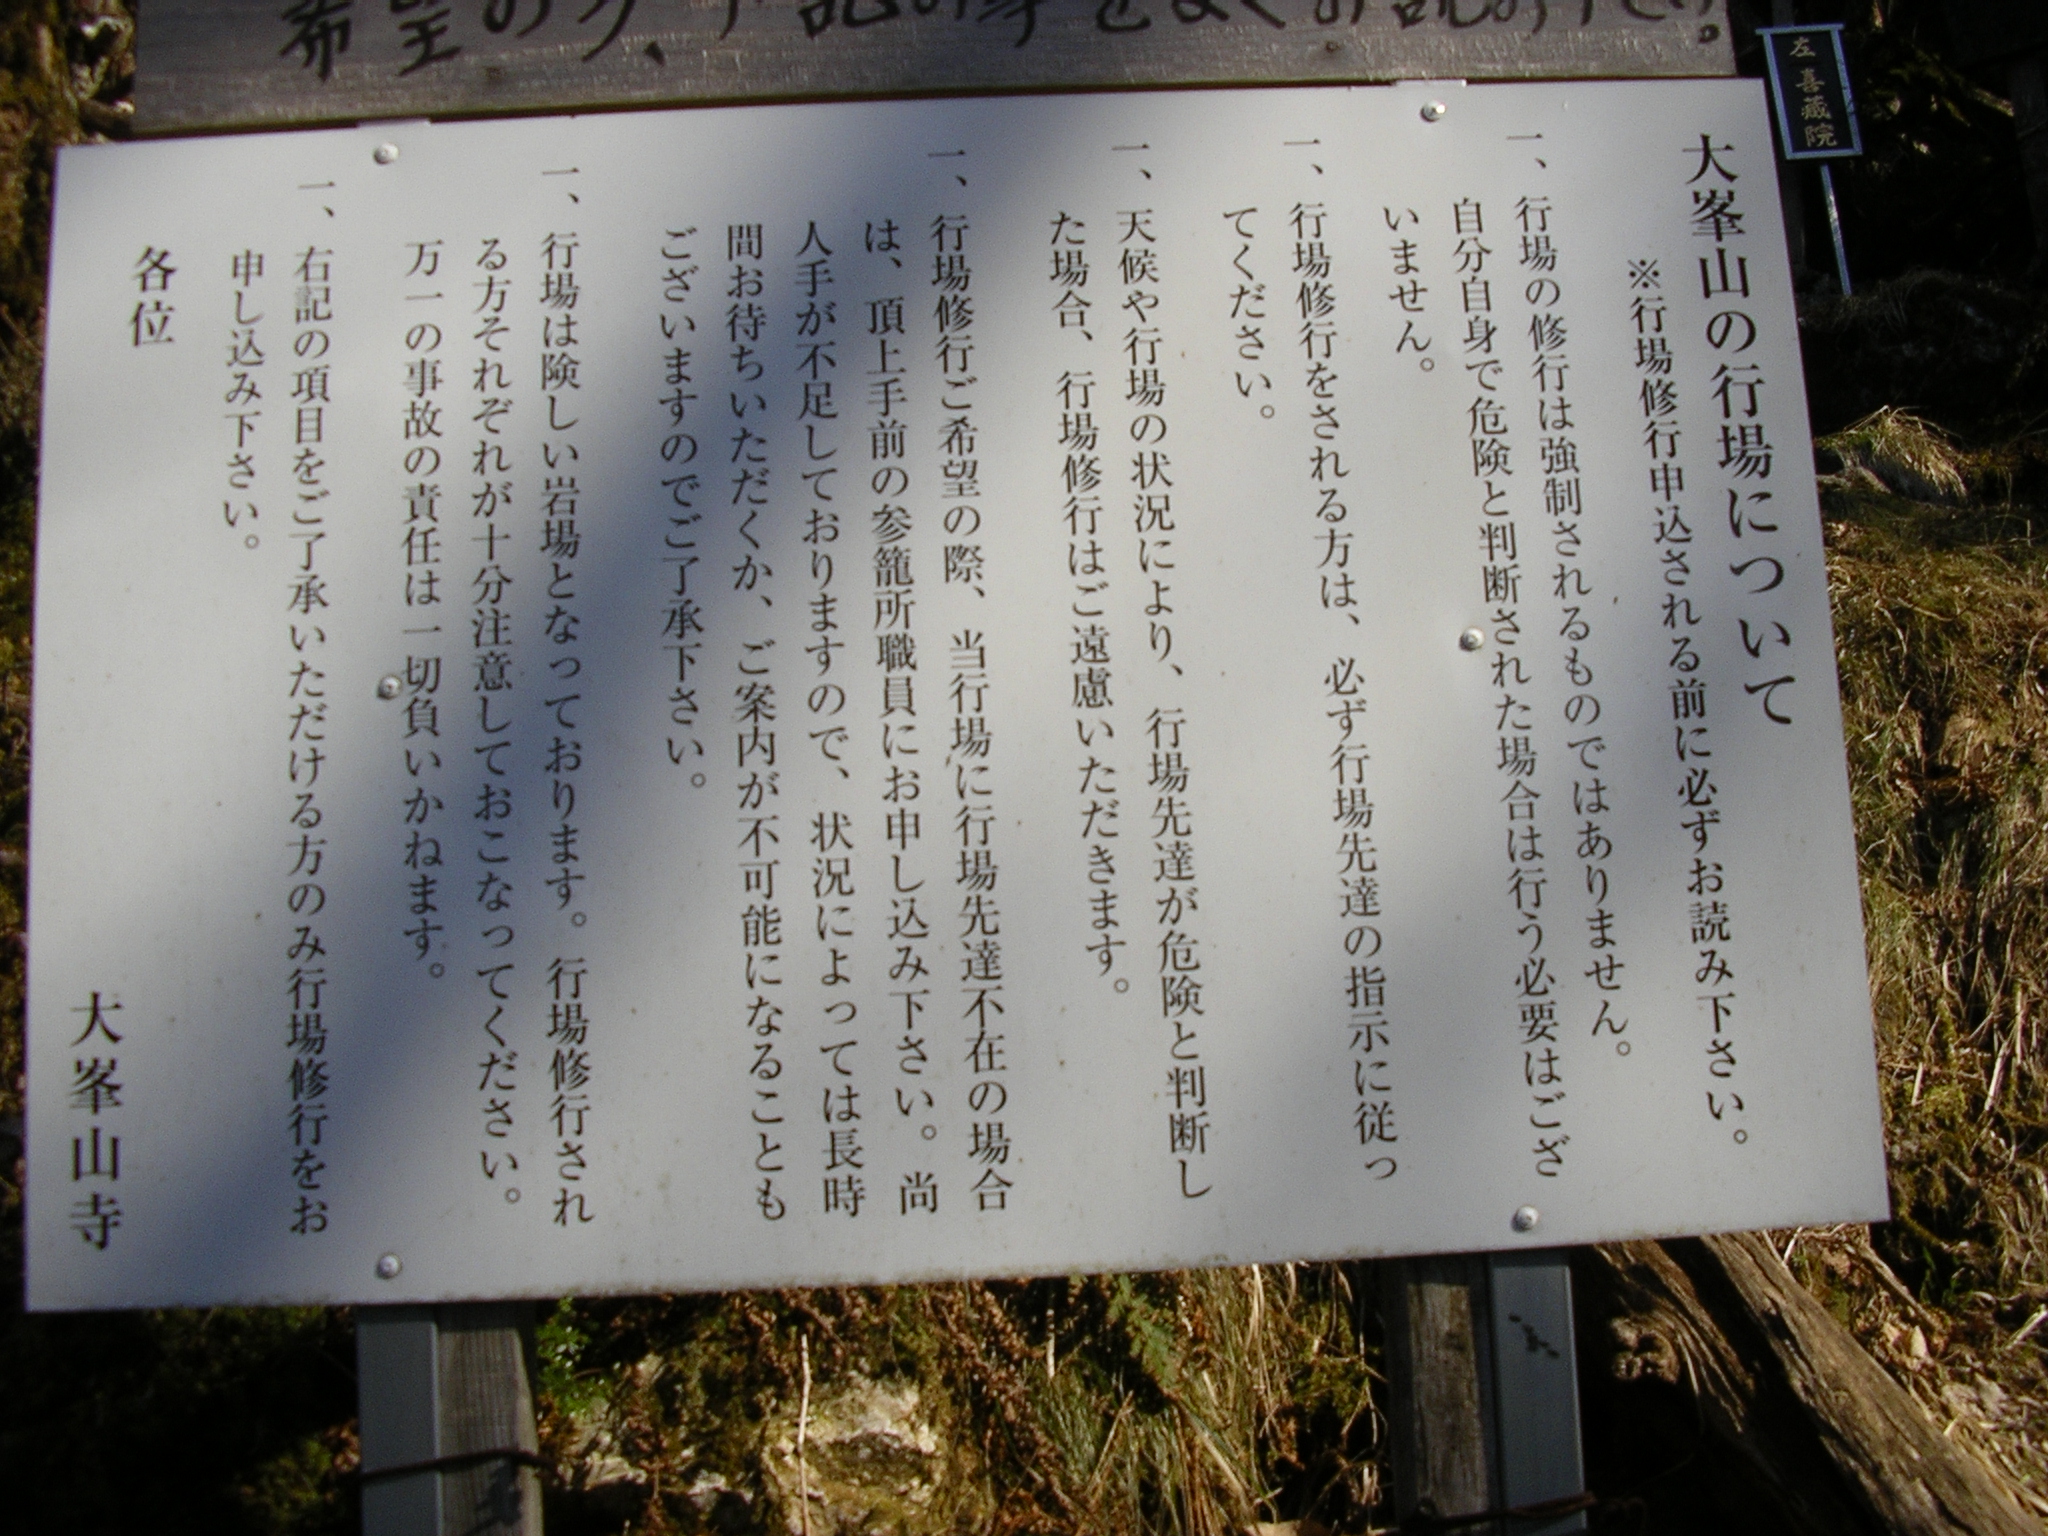 希望の方、下記の事をよくお読み下さい。
左 喜蔵院
大峯山の行場について
※行場修行申込される前に必ずお読み下さい。
一、行場の修行は強制されるものではありません。
自分自身で危険と判断された場合は行う必要はござ
いません。
一、行場修行をされる方は、必ず行場先達の指示に従っ
てください。
一、天候や行場の状況により、行場先達が危険と判断し
た場合、行場修行はご遠慮いただきます。
一、行場修行ご希望の際、当行場に行場先達不在の場合
は、頂上手前の参籠所職員にお申し込み下さい。尚
人手が不足しておりますので、状況によっては長時
間お待ちいただくか、ご案内が不可能になることも
ございますのでご了承下さい。
一、行場は険しい岩場となっております。行場修行され
る方それぞれが十分注意しておこなってください。
万一の事故の責任は一切負いかねます。
一、右記の項目をご了承いただける方のみ行場修行をお
申し込み下さい。
各位
大峯山寺